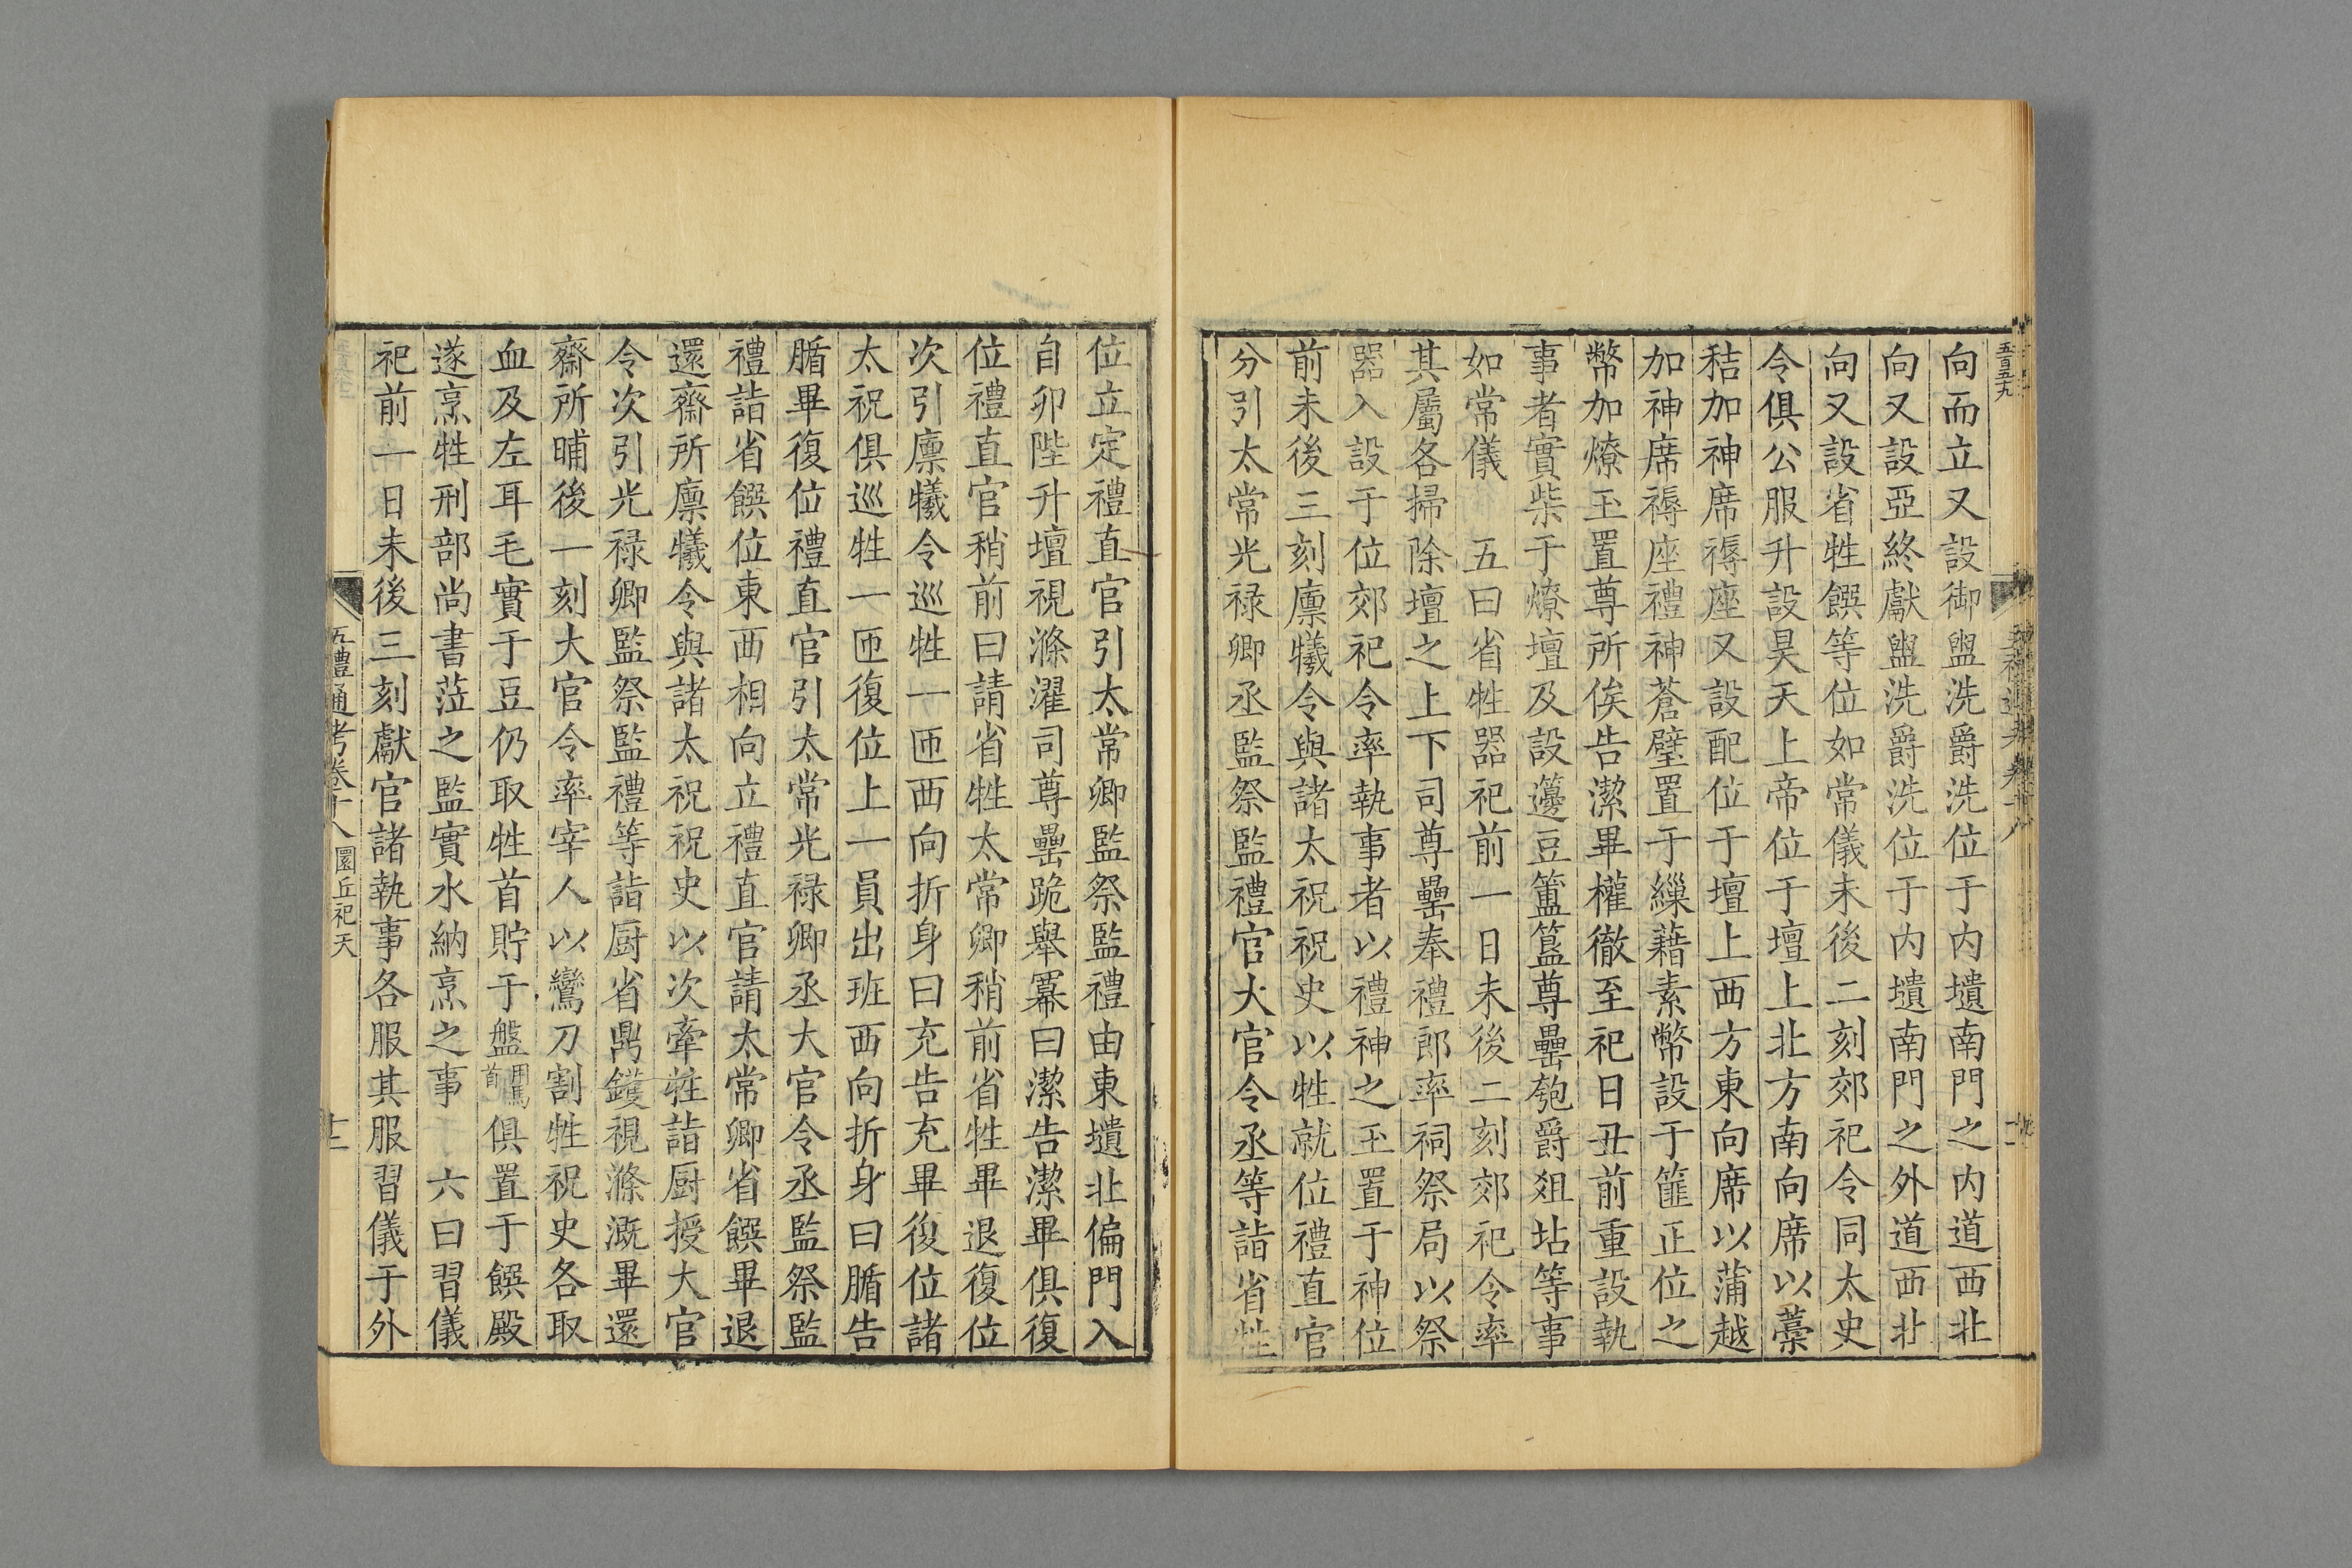 五百五九
向而立又設御盥洗爵洗位于内壝南門之内道西北
向又設亞終獻盥洗爵洗位于内壝南門之外道西北
向又設省牲饌等位如常儀未後二刻郊祀令同太史
令俱公服升設昊天上帝位于壇上北方南向席以藁
秸加神席褥座又設配位于壇上西方東向席以蒲越
加神席褥座禮神蒼璧置于繅藉素幣設于篚正位之
幣加燎玉置尊所俟告潔畢權徹至祀日丑前重設執
事者實柴于燎壇及設籩豆簠簋尊罍匏爵俎坫等事
如常儀　五曰省牲器祀前一日未後二刻郊祀令率
其屬各掃除壇之上下司尊罍奉禮郎率祠祭局以祭
器入設于位郊祀令率執事者以禮神之玉置于神位
前未後三刻廩犧令與諸太祝祝史以牲就位禮直官
分引太常光禄卿丞監祭監禮官大官令丞等詣省牲
位立定禮直官引太常卿監祭監禮由東壝北偏門入
自卯陛升壇視滌濯司尊罍跪舉冪曰潔告潔畢俱復
位禮直官稍前曰請省牲太常卿稍前省牲畢退復位
次引廩犧令巡牲一匝西向折身曰充告充畢復位諸
太祝俱巡牲一匝復位上一員出班西向折身曰腯告
腯畢復位禮直官引太常光禄卿丞大官令丞監祭監
禮詣省饌位東西相向立禮直官請太常卿省饌畢退
還齋所廩犧令與諸太祝祝史以次牽牲詣厨授大官
令次引光禄卿監祭監禮等詣厨省鼎鑊視滌溉畢還
齋所晡後一刻大官令率宰人以鸞刀割牲祝史各取
血及左耳毛實于豆仍取牲首貯于盤用馬首俱置于饌殿
遂烹牲刑部尚書蒞之監實水納烹之事　六曰習儀
祀前一日未後三刻獻官諸執事各服其服習儀于外
五禮通考卷十八 圜丘祀天 十二